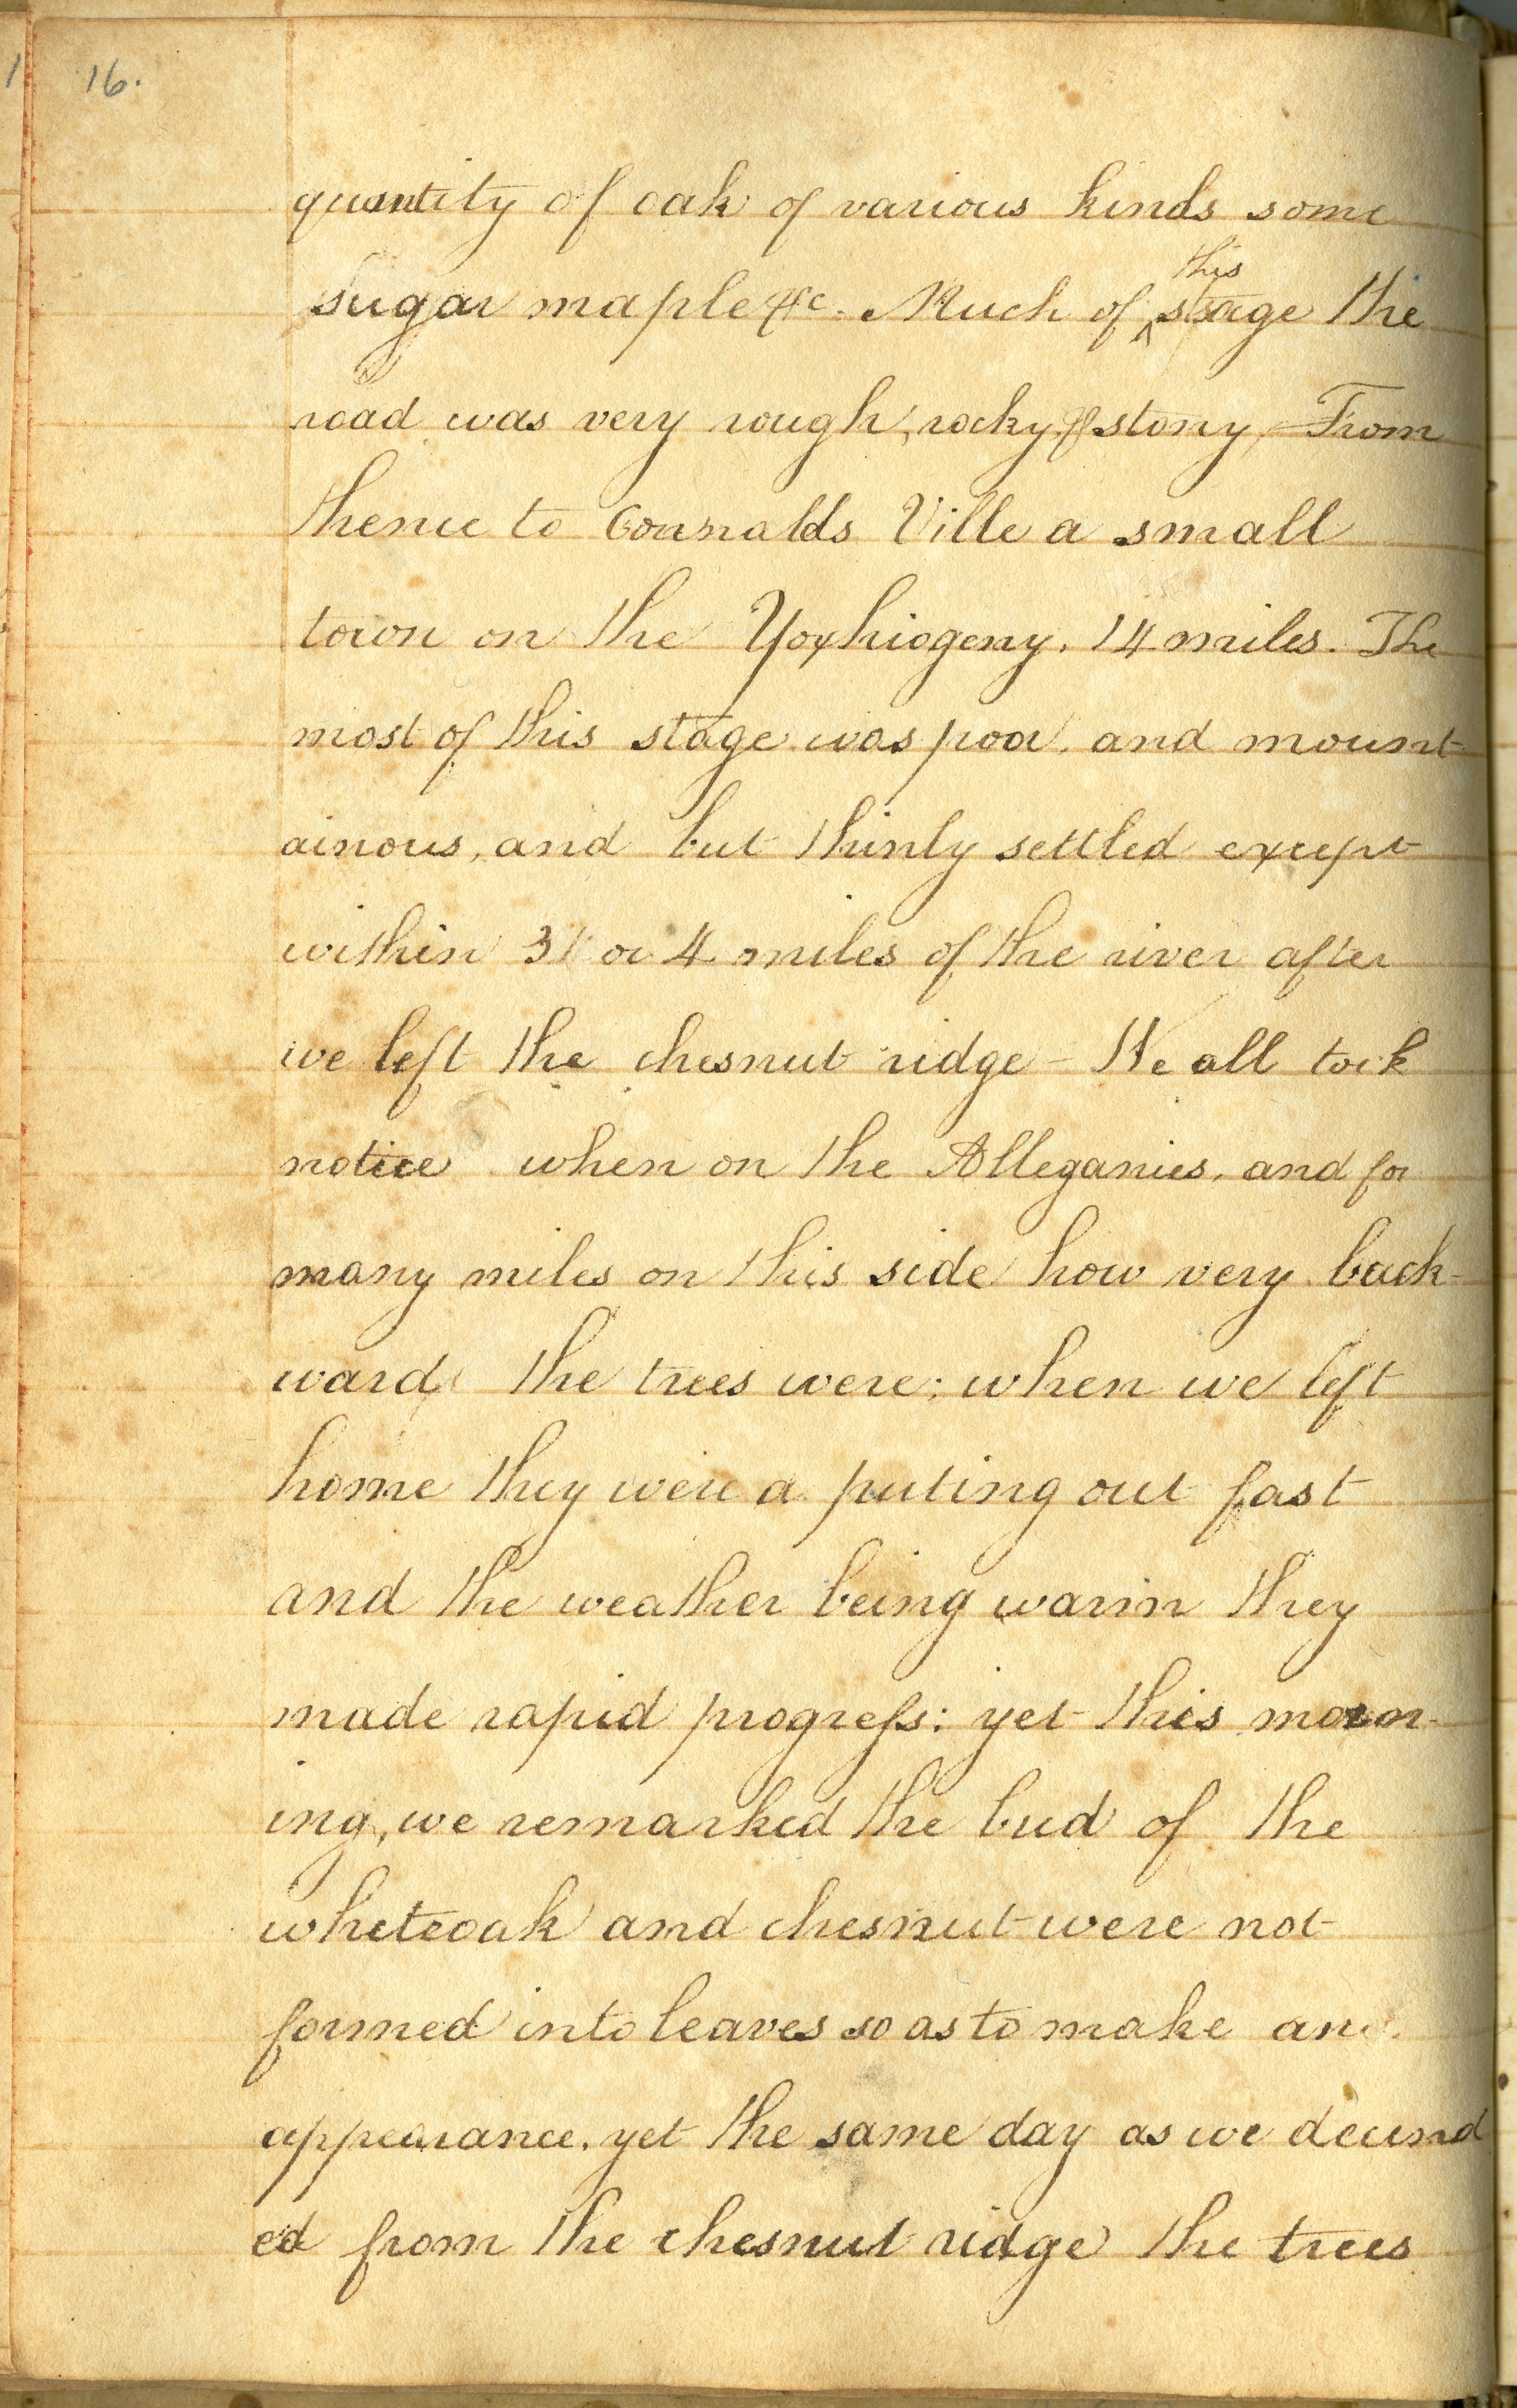 16.
quantity of oak of various kinds some
sugar maple &c. Much of this stage the
road was very rough, rocky & stony, From
thence to Connalds Ville a small
town on the Yoxhiogeny. 14 miles. The
most of this stage was poor, and mount-
ainous, and but thinly settled except
within 3 or 4 miles of the river after
we left the chesnut ridge - We all took
notice when on the Alleganies, and for
many miles on this side how very back-
ward the trees were; when we left
home they were a puting out fast
and the weather being warm they
made rapid progress: yet this morn-
ing, we remarked the bud of the
whiteoak and chesnut were not
formed into leaves so as to make an
appearance, yet the same day as we decend
ed from the chesnut ridge the trees